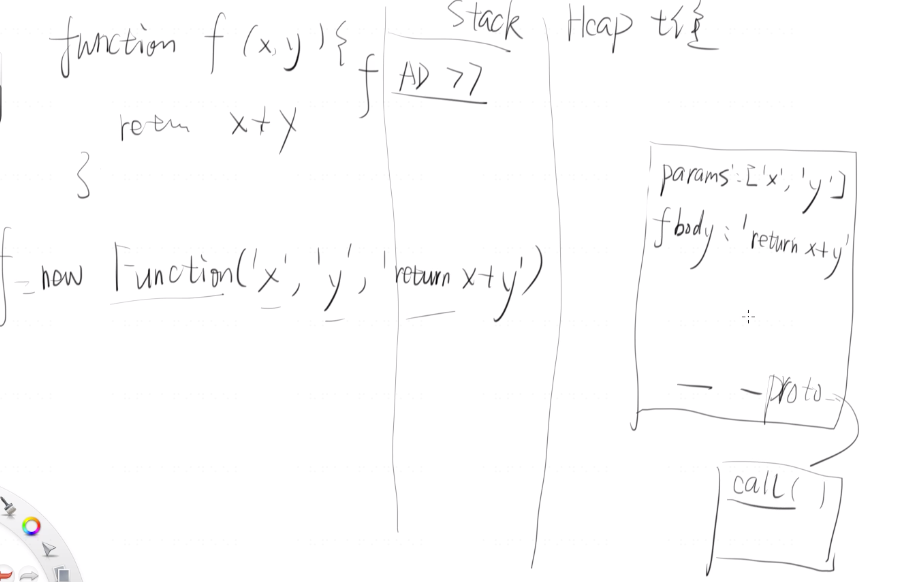 function f (x, y) {
return x+y
}
f = new Function('x', 'y', 'return x+y')
Stack
f
AD 77
Heap
params: ['x', 'y']
fbody: 'return x+y'
— — proto
call( )